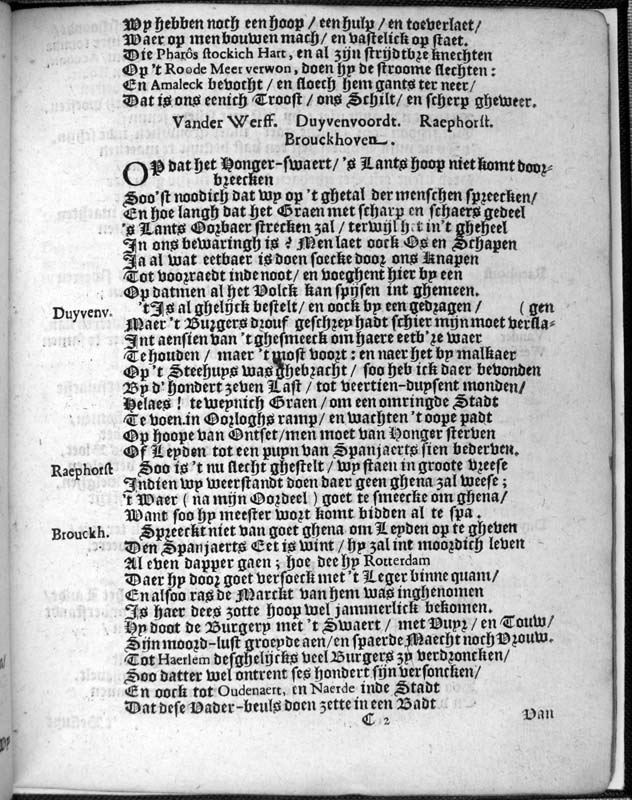 Wy hebben noch een hoop / een hulp / en toeverlaet /
Waer op men bouwen mach / en vastelick op staet.
Die Pharôs stockich Hart, en al zijn strijdtbre knechten
Op 't Roode Meer verwon, doen hy de stroome slechten :
En Amaleck bevocht / en sloech hem gants ter neer /
Dat is ons eenich Troost / ons Schilt / en scherp gheweer.
Vander Werff. Duyvenvoordt. Raephorst.
Brouckhoven.
OP dat het Honger-swaert / 's Lants hoop niet komt door-
breecken
Soo'st noodich dat wy op 't ghetal der menschen spreecken /
En hoe langh dat het Graen met scharp en schaers gedeel
's Lants Oorbaer strecken zal / terwijl het in't gheheel
In ons bewaringh is ? Men laet oock Os en Schapen
Ja al wat eetbaer is doen soecke door ons Knapen
Tot voorraedt inde noot / en voeghent hier by een
Op datmen al het Volck kan spijsen int ghemeen.
Duyvenv. 't Is al ghelijck bestelt / en oock by een gedragen / ( gen
Maer 't Burgers drouf geschrey hadt schier mijn moet versla-
Int aensien van 't ghesmeeck om haere eetb're waer
Te houden / maer 't most voort : en naer het by malkaer
Op 't Steehuys was ghebracht / soo heb ick daer bevonden
By d' hondert zeven Last / tot veertien-duysent monden /
Helaes ! te weynich Graen / om een omringde Stadt
Te voen in Oorloghs ramp / en wachten 't oope padt
Op hoope van Ontset / men moet van Honger sterven
Of Leyden tot een puyn van Spanjaerts sien bederven.
Raephorst Soo is 't nu slecht ghestelt / wy staen in groote vreese
Indien wy weerstandt doen daer geen ghena zal weese ;
't Waer ( na mijn Oordeel ) goet te smeecke om ghena /
Want soo hy meester wort komt bidden al te spa.
Brouckh. Spreeckt niet van goet ghena om Leyden op te gheven
Den Spanjaerts Eet is wint / hy zal int moordich leven
Al even dapper gaen ; hoe dee hy Rotterdam
Daer hy door goet versoeck met 't Leger binne quam /
En alsoo ras de Marckt van hem was inghenomen
Is haer dees zotte hoop wel jammerlick bekomen.
Hy doot de Burgery met 't Swaert / met Vuyr / en Touw /
Sijn moord-lust groeyde aen / en spaerde Maecht noch Vrouw.
Tot Haerlem desghelijcks veel Burgers zy verdroncken /
Soo datter wel ontrent ses hondert sijn versoncken /
En oock tot Oudenaert, en Naerde inde Stadt
Dat dese Vader-beuls doen zette in een Badt
C 2 Van